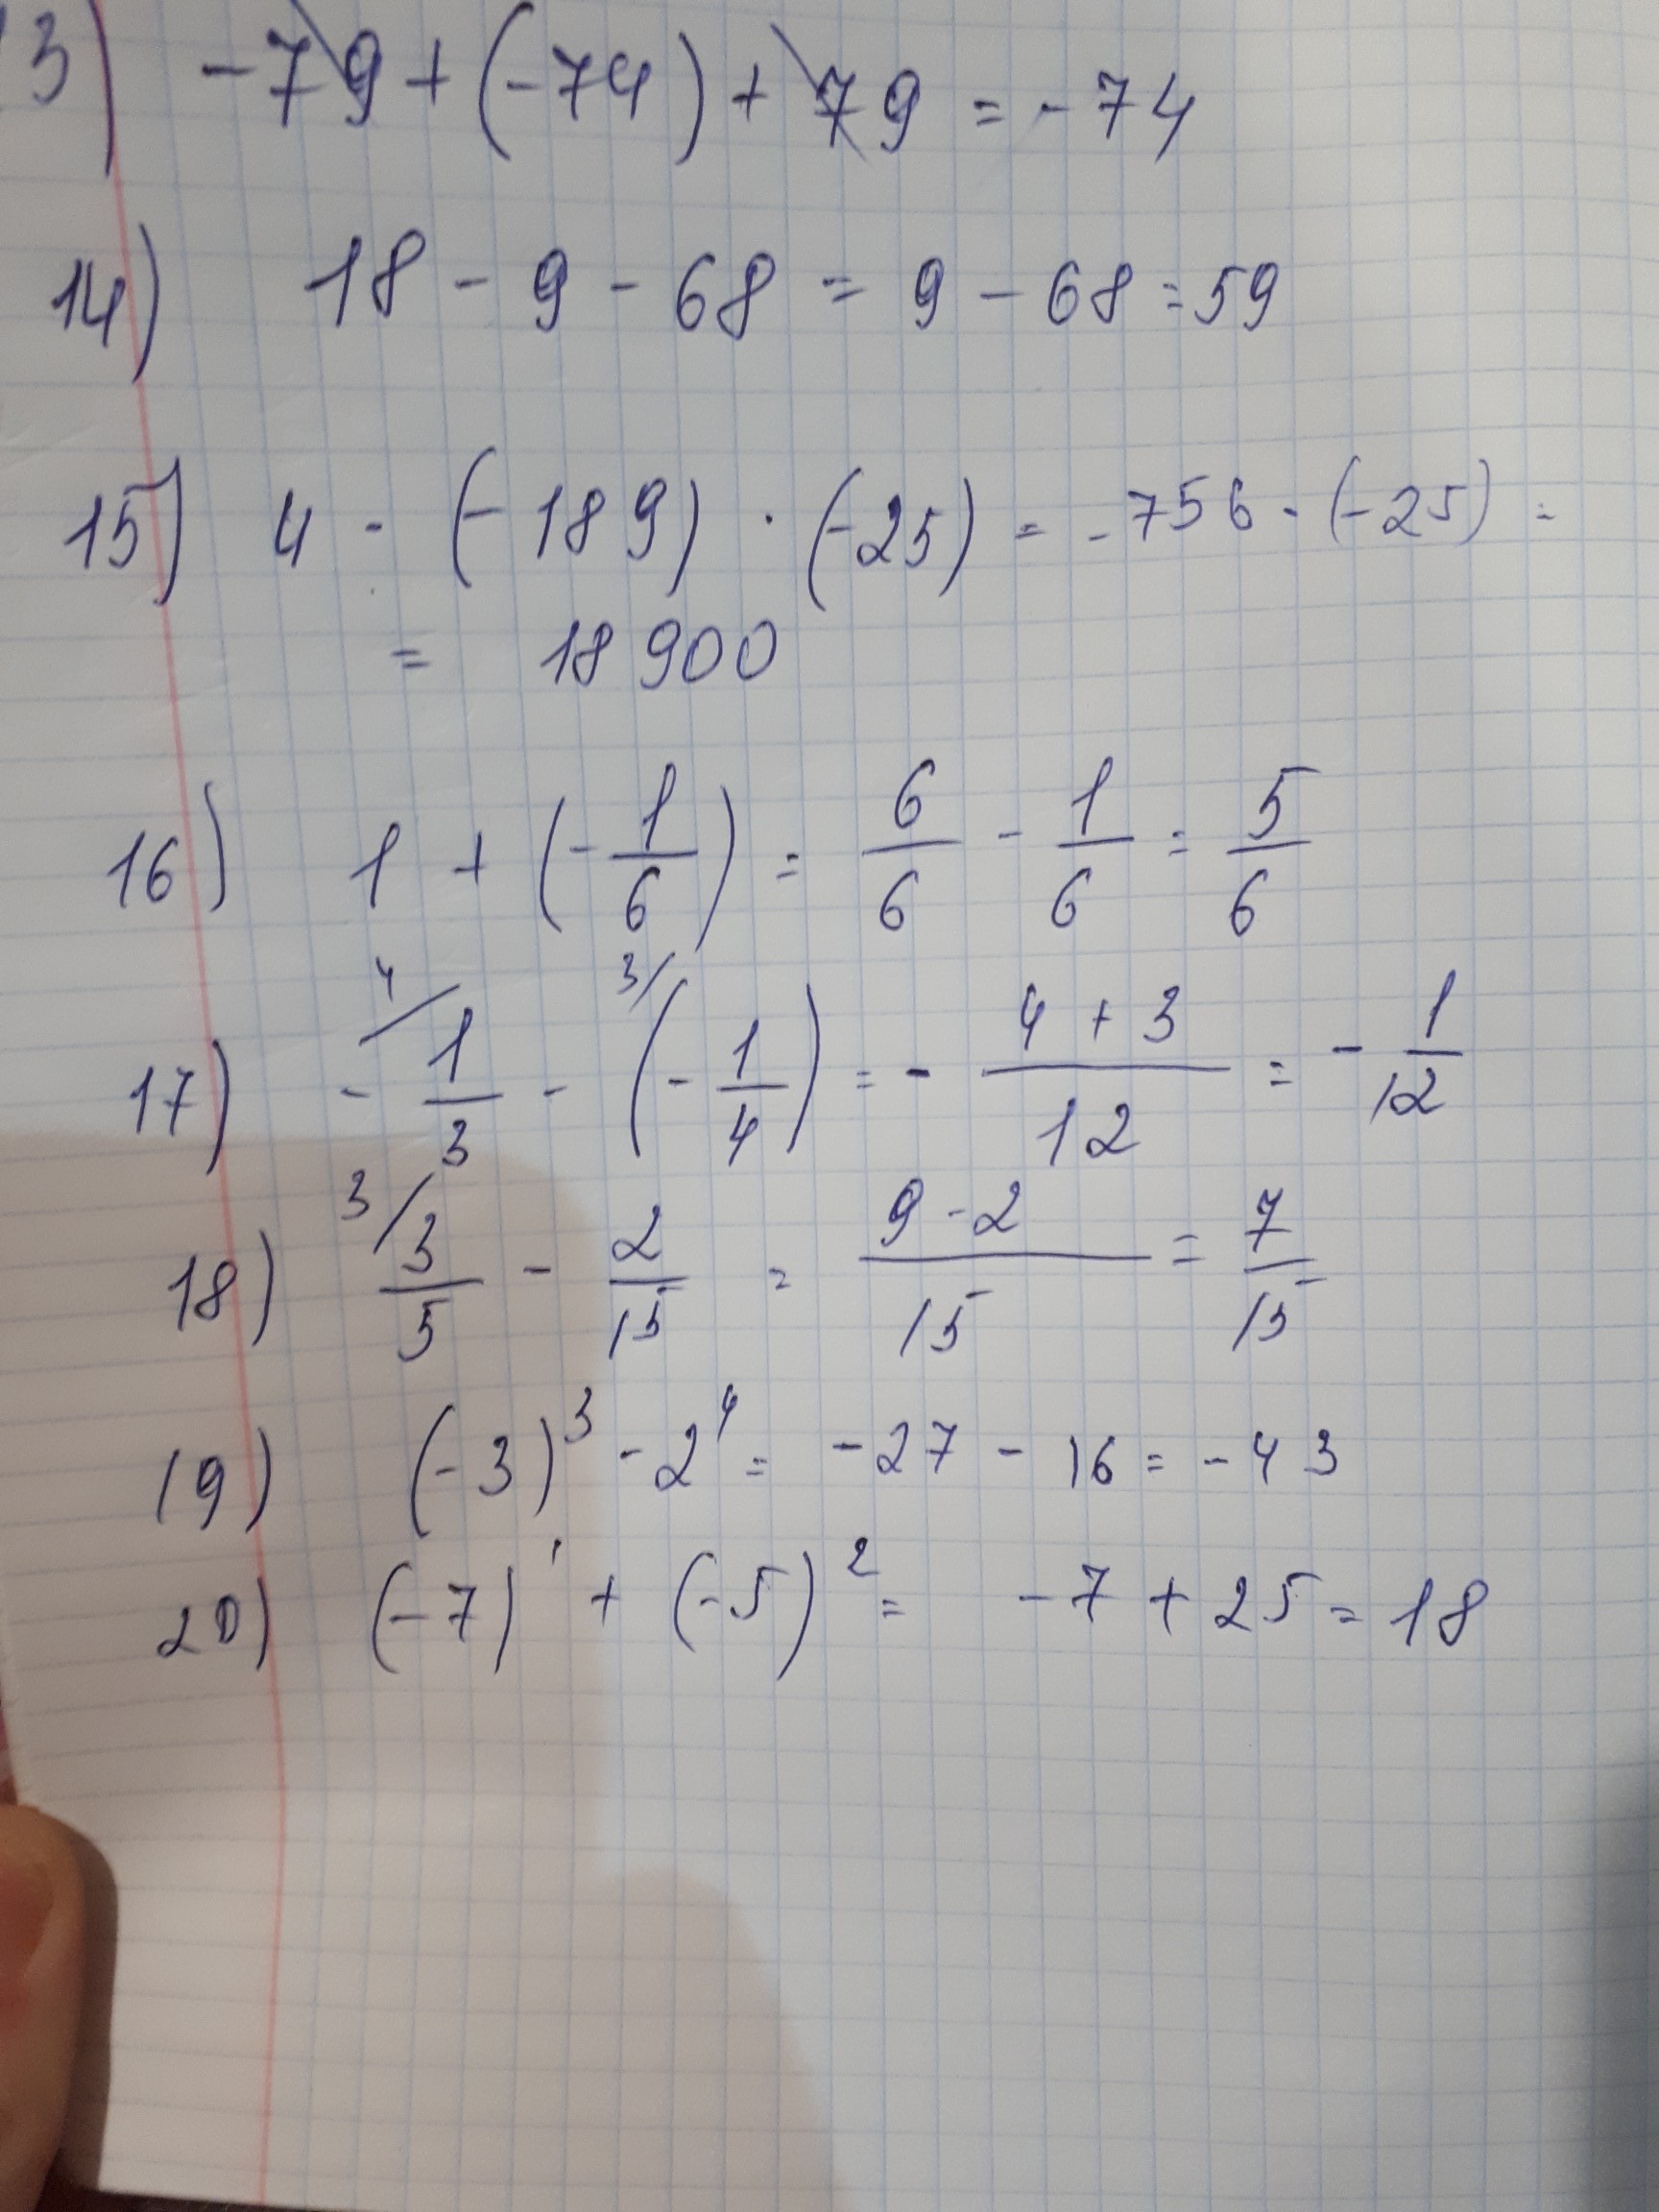 13) -79 + (-74) + 79 = -74
14) 18 - 9 - 68 = 9 - 68 = 59
15) 4 · (-189) · (-25) = -756 · (-25) =
= 18900
16) 1 + (-1/6) = 6/6 - 1/6 = 5/6
17) 4/ -1/3 - 3/ (-1/4) = - (4 + 3)/12 = -1/12
18) 3/ 3/5 - 2/15 = (9 - 2)/15 = 7/15
19) (-3)³ - 2⁴ = -27 - 16 = -43
20) (-7)¹ + (-5)² = -7 + 25 = 18